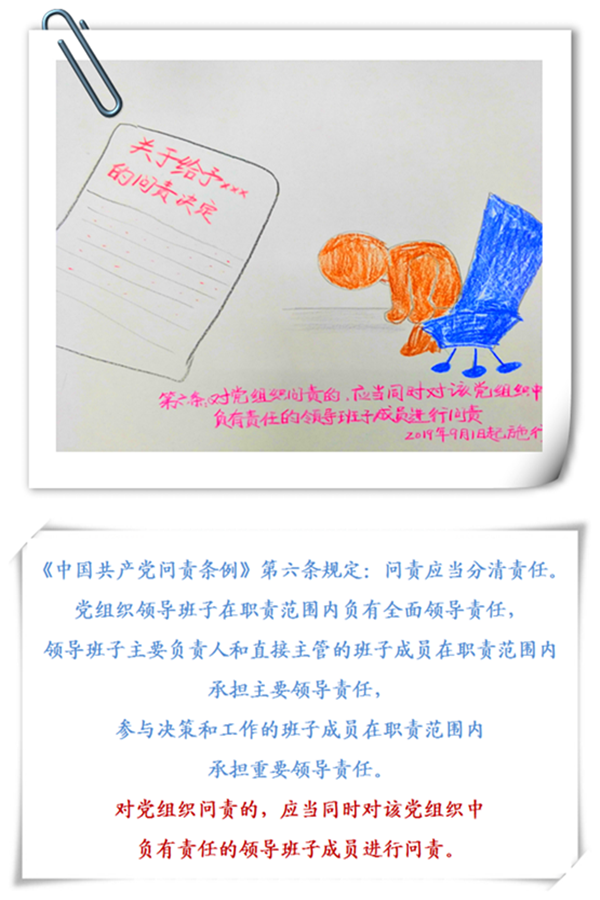 关于给予×××
的问责决定
第六条,对党组织问责的,应当同时对该党组织中
负有责任的领导班子成员进行问责
2019年9月1日起施行
《中国共产党问责条例》第六条规定:问责应当分清责任。
党组织领导班子在职责范围内负有全面领导责任,
领导班子主要负责人和直接主管的班子成员在职责范围内
承担主要领导责任,
参与决策和工作的班子成员在职责范围内
承担重要领导责任。
对党组织问责的,应当同时对该党组织中
负有责任的领导班子成员进行问责。